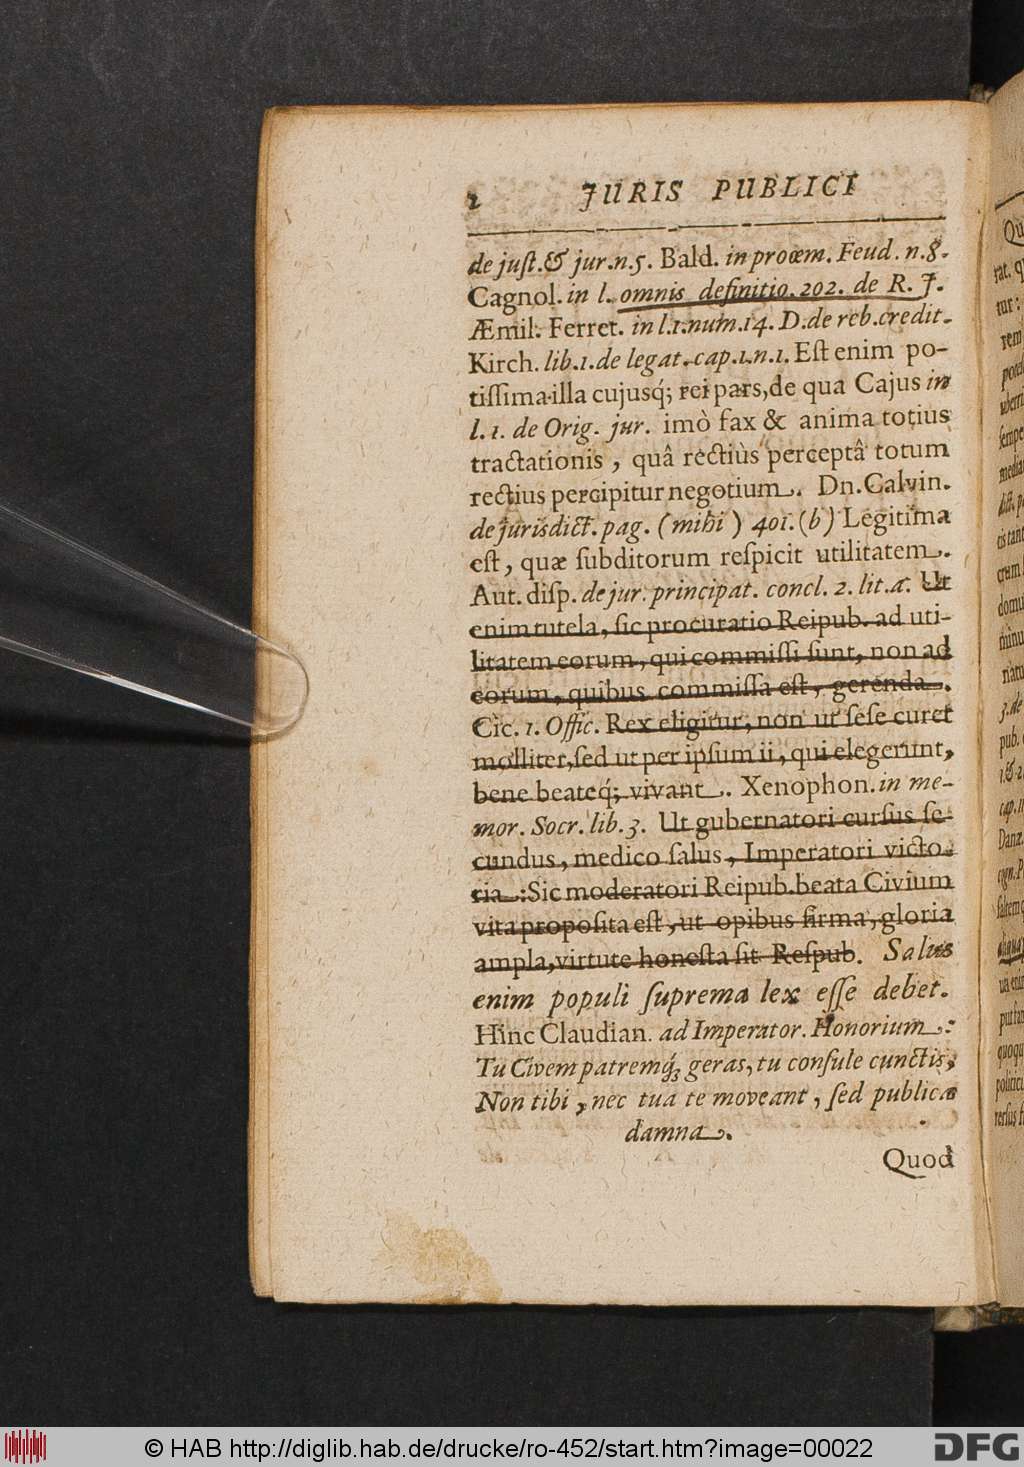 2 JURIS PUBLICI
de juſt. & jur. n. 5. Bald. in proœm. Feud. n. 8.
Cagnol. in l. omnis definitio. 202. de R. J.
Æmil. Ferret. in l. 1. num. 14. D. de reb. credit.
Kirch. lib. 1. de legat. cap. 1. n. 1. Eſt enim po-
tiſſima illa cujusq́; rei pars, de qua Cajus in
l. 1. de Orig. jur. imò fax & anima totius
tractationis, quâ rectiùs perceptâ totum
rectius percipitur negotium. Dn. Calvin.
de jurisdict. pag. (mihi) 401. (b) Legitima
eſt, quæ ſubditorum reſpicit utilitatem.
Aut. diſp. de jur. principat. concl. 2. lit. a. Ut
enim tutela, ſic procuratio Reipub. ad uti-
litatem eorum, qui commiſſi ſunt, non ad
eorum, quibus commiſſa eſt, gerenda.
Cic. 1. Offic. Rex eligitur, non ut ſeſe curet
molliter, ſed ut per ipſum ii, qui elegerunt,
bene beateq́; vivant. Xenophon. in me-
mor. Socr. lib. 3. Ut gubernatori curſus ſe-
cundus, medico ſalus, Imperatori victo-
ria: Sic moderatori Reipub. beata Civium
vita propoſita eſt, ut opibus firma, gloria
ampla, virtute honeſta ſit Reſpub. Salus
enim populi ſuprema lex eſſe debet.
Hinc Claudian. ad Imperator. Honorium:
Tu Civem patremq́; geras, tu conſule cunctis,
Non tibi, nec tua te moveant, ſed publica
damna.
Quod
© HAB http://diglib.hab.de/drucke/ro-452/start.htm?image=00022
DFG